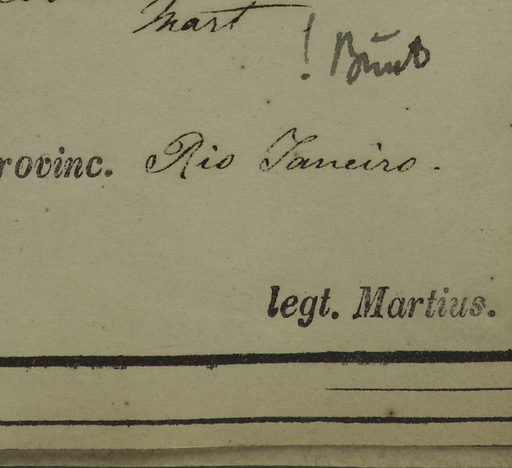 Mart
! Burret
rovinc. Rio Janeiro.
legt. Martius.